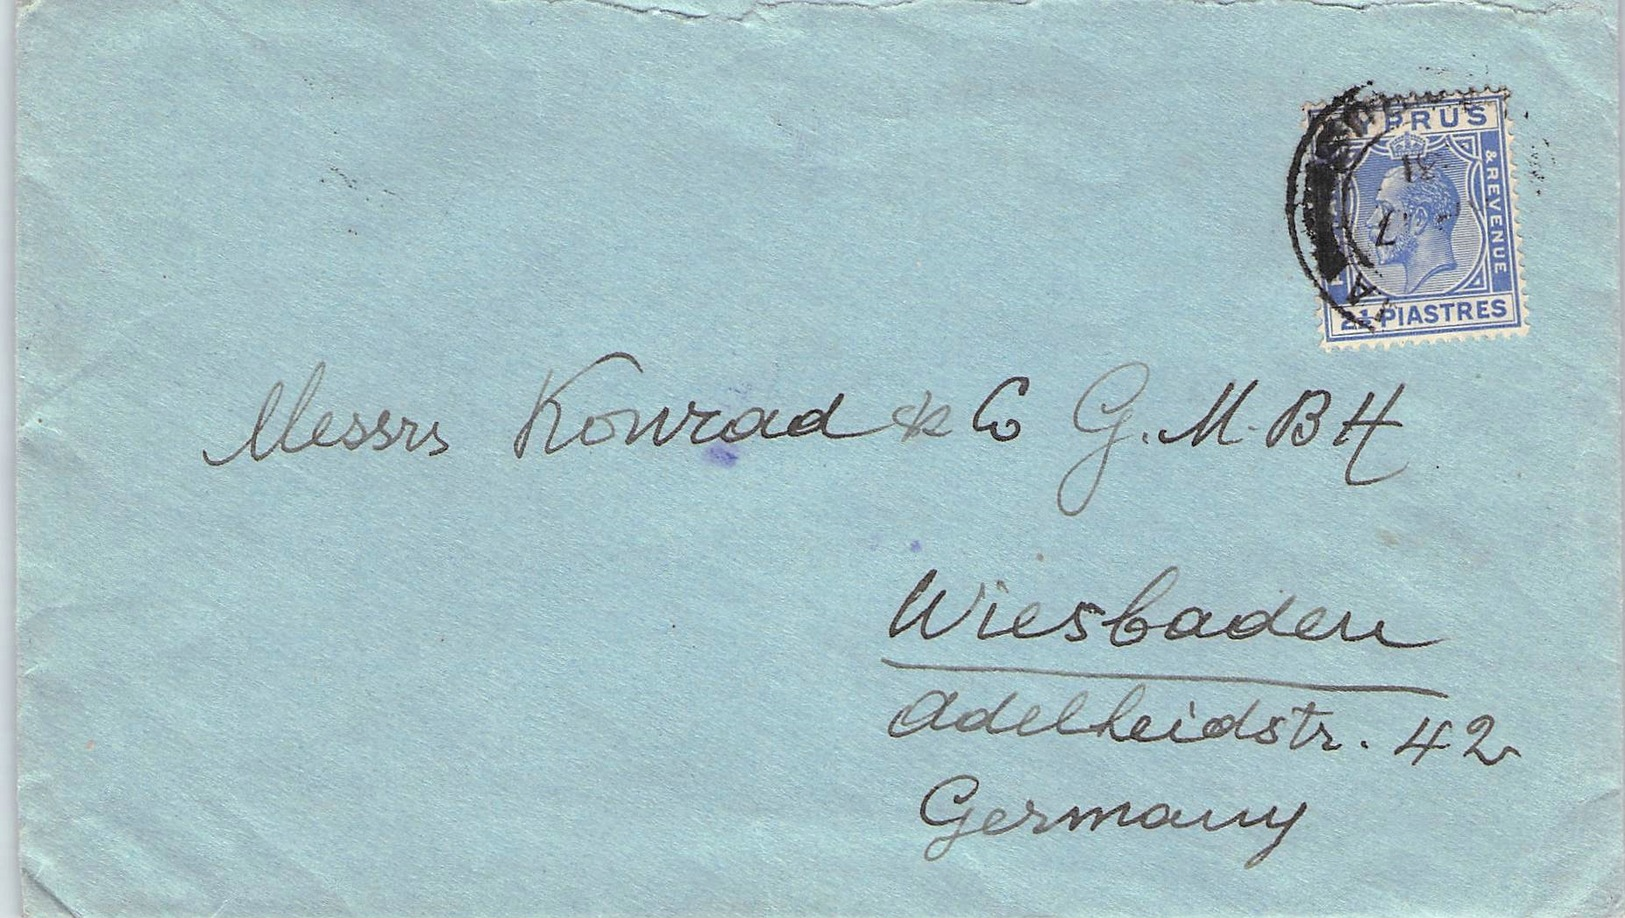 CYPRUS
& REVENUE
2½ PIASTRES
Messrs Konrad & Co G.M.B H
Wiesbaden
Adelheidstr. 42
Germany